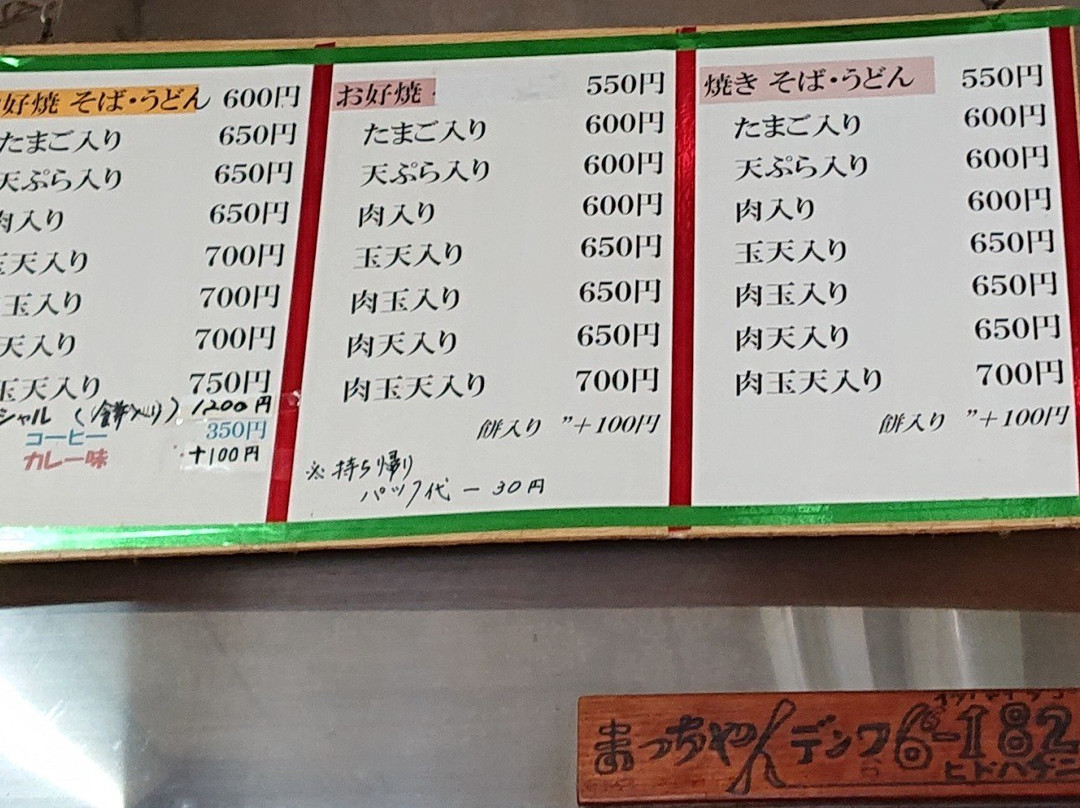 好焼 そば・うどん 600円
たまご入り 650円
天ぷら入り 650円
肉入り 650円
玉天入り 700円
玉入り 700円
天入り 700円
玉天入り 750円
シャル (餅入り) 1200円
コーヒー 350円
カレー味 +100円
お好焼 550円
たまご入り 600円
天ぷら入り 600円
肉入り 600円
玉天入り 650円
肉玉入り 650円
肉天入り 650円
肉玉天入り 700円
餅入り ”+100円
※持ち帰り
パック代 ー 30円
焼き そば・うどん 550円
たまご入り 600円
天ぷら入り 600円
肉入り 600円
玉天入り 650円
肉玉入り 650円
肉天入り 650円
肉玉天入り 700円
餅入り ”+100円
まっちゃん デンワ 6-182